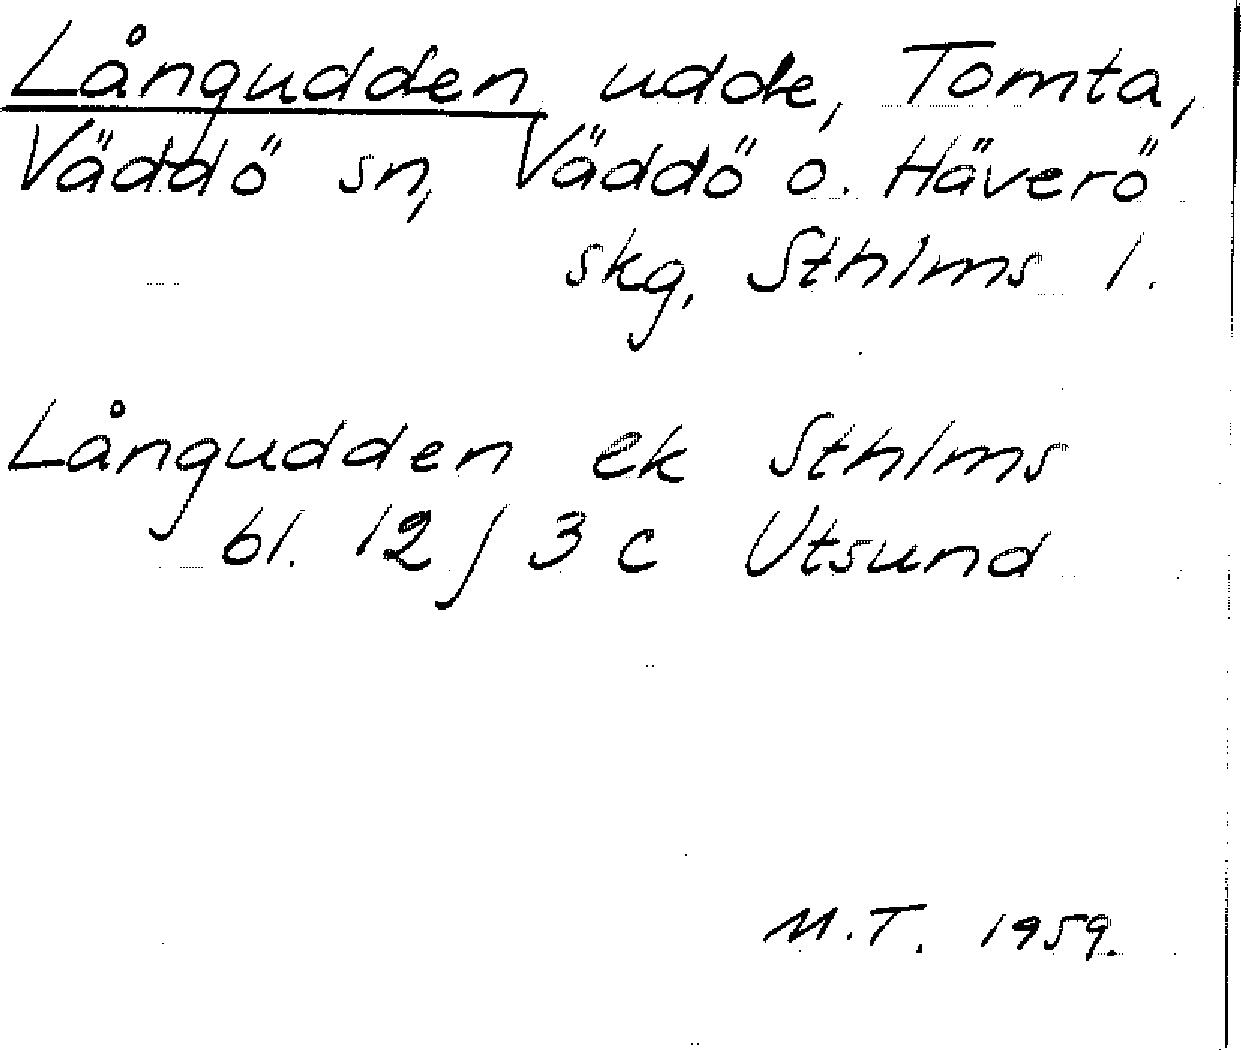 Långudden udde, Tomta,
Väddö sn, Väddö o. Häverö
skg, Sthlms l.
Långudden ek Sthlms
bl. 12 j 3 c Utsund
M.T. 1959.